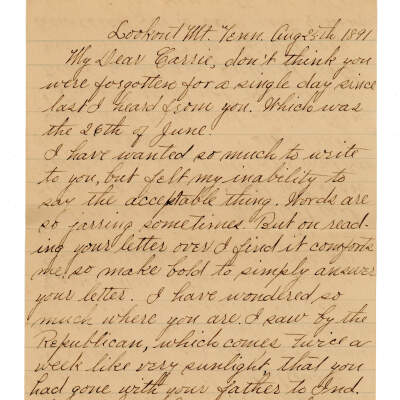 Lookout Mt. Tenn. Aug 25th 1891
My Dear Carrie, don't think you
were forgotten for a single day since
last I heard from you. Which was
the 26th of June.
I have wanted so much to write
to you, but felt my inability to
say the acceptable thing. Words are
so jarring sometimes. But on read-
ing your letter over I find it comforts
me so make bold to simply answer
your letter. I have wondered so
much where you are. I saw by the
Republican, which comes twice a
week like very sunlight, that you
had gone with your father to Ind.